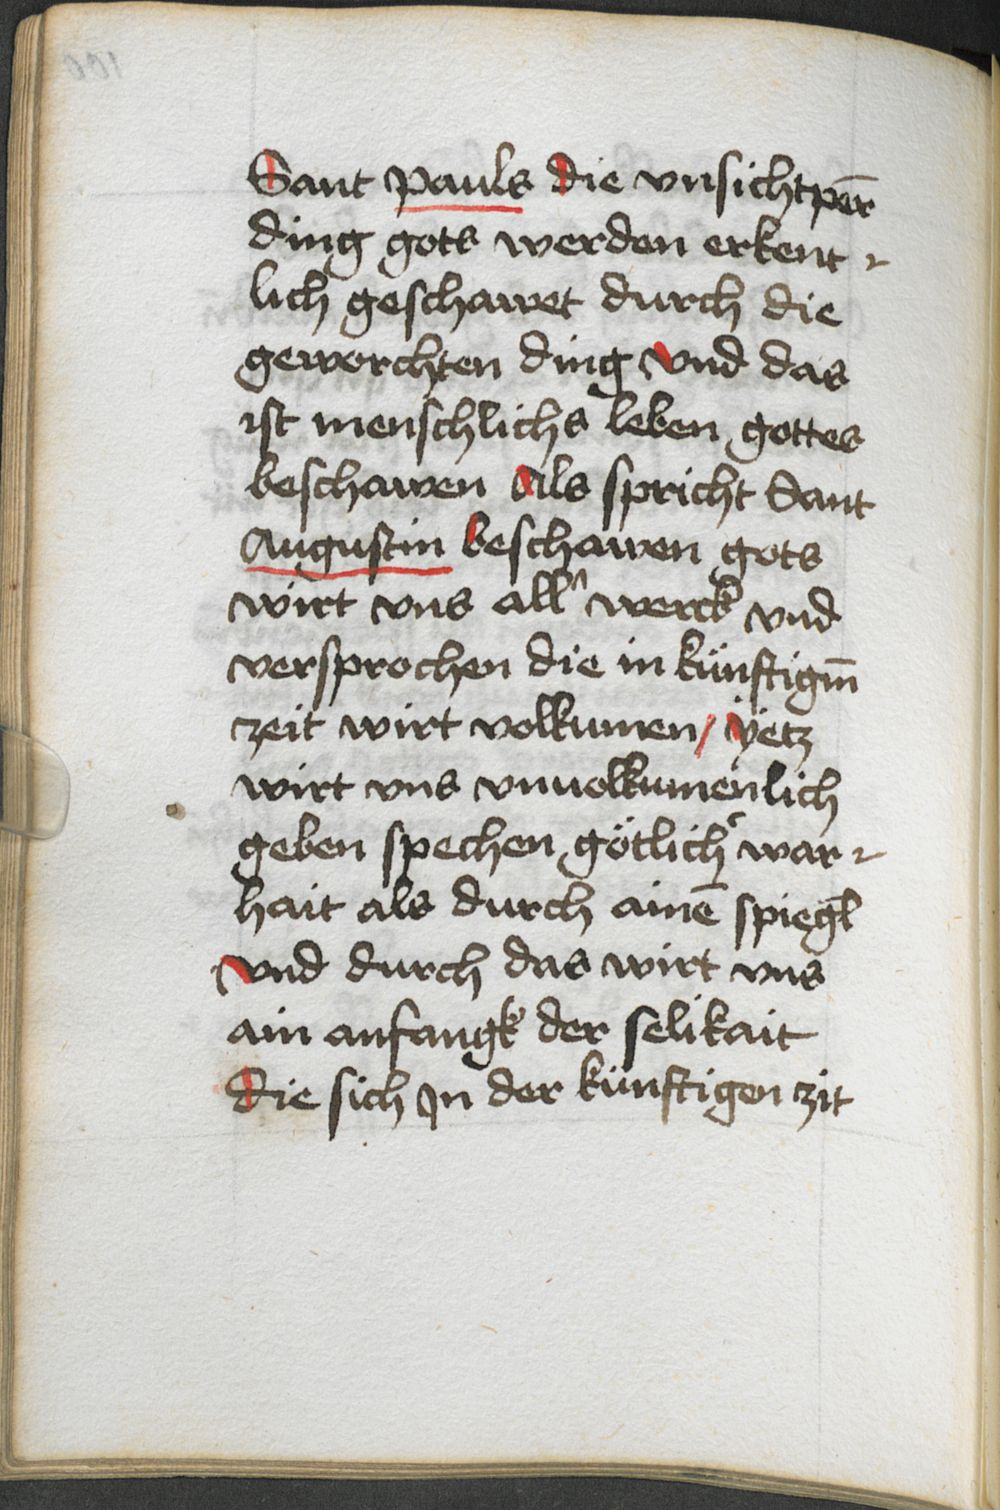 Sant pauls die vnsichtper̄
ding gots werden erkent
lich geschawet durch die
geworchten ding Vnd das
ist menschlichs leben gottes
beschawen Als spricht Sant
Augustin beschawen gots
wirt vns all werck vnd
versprochen die in künftigm̄
zeit wirt volkumen / ÿetz
wirt vns vnuolkumenlich
geben spechen götlich' war
hait als durch ainē spiegl̄
Vnd durch das wirt vns
ain anfangk der selikait
die sich Jn der künftigen zit